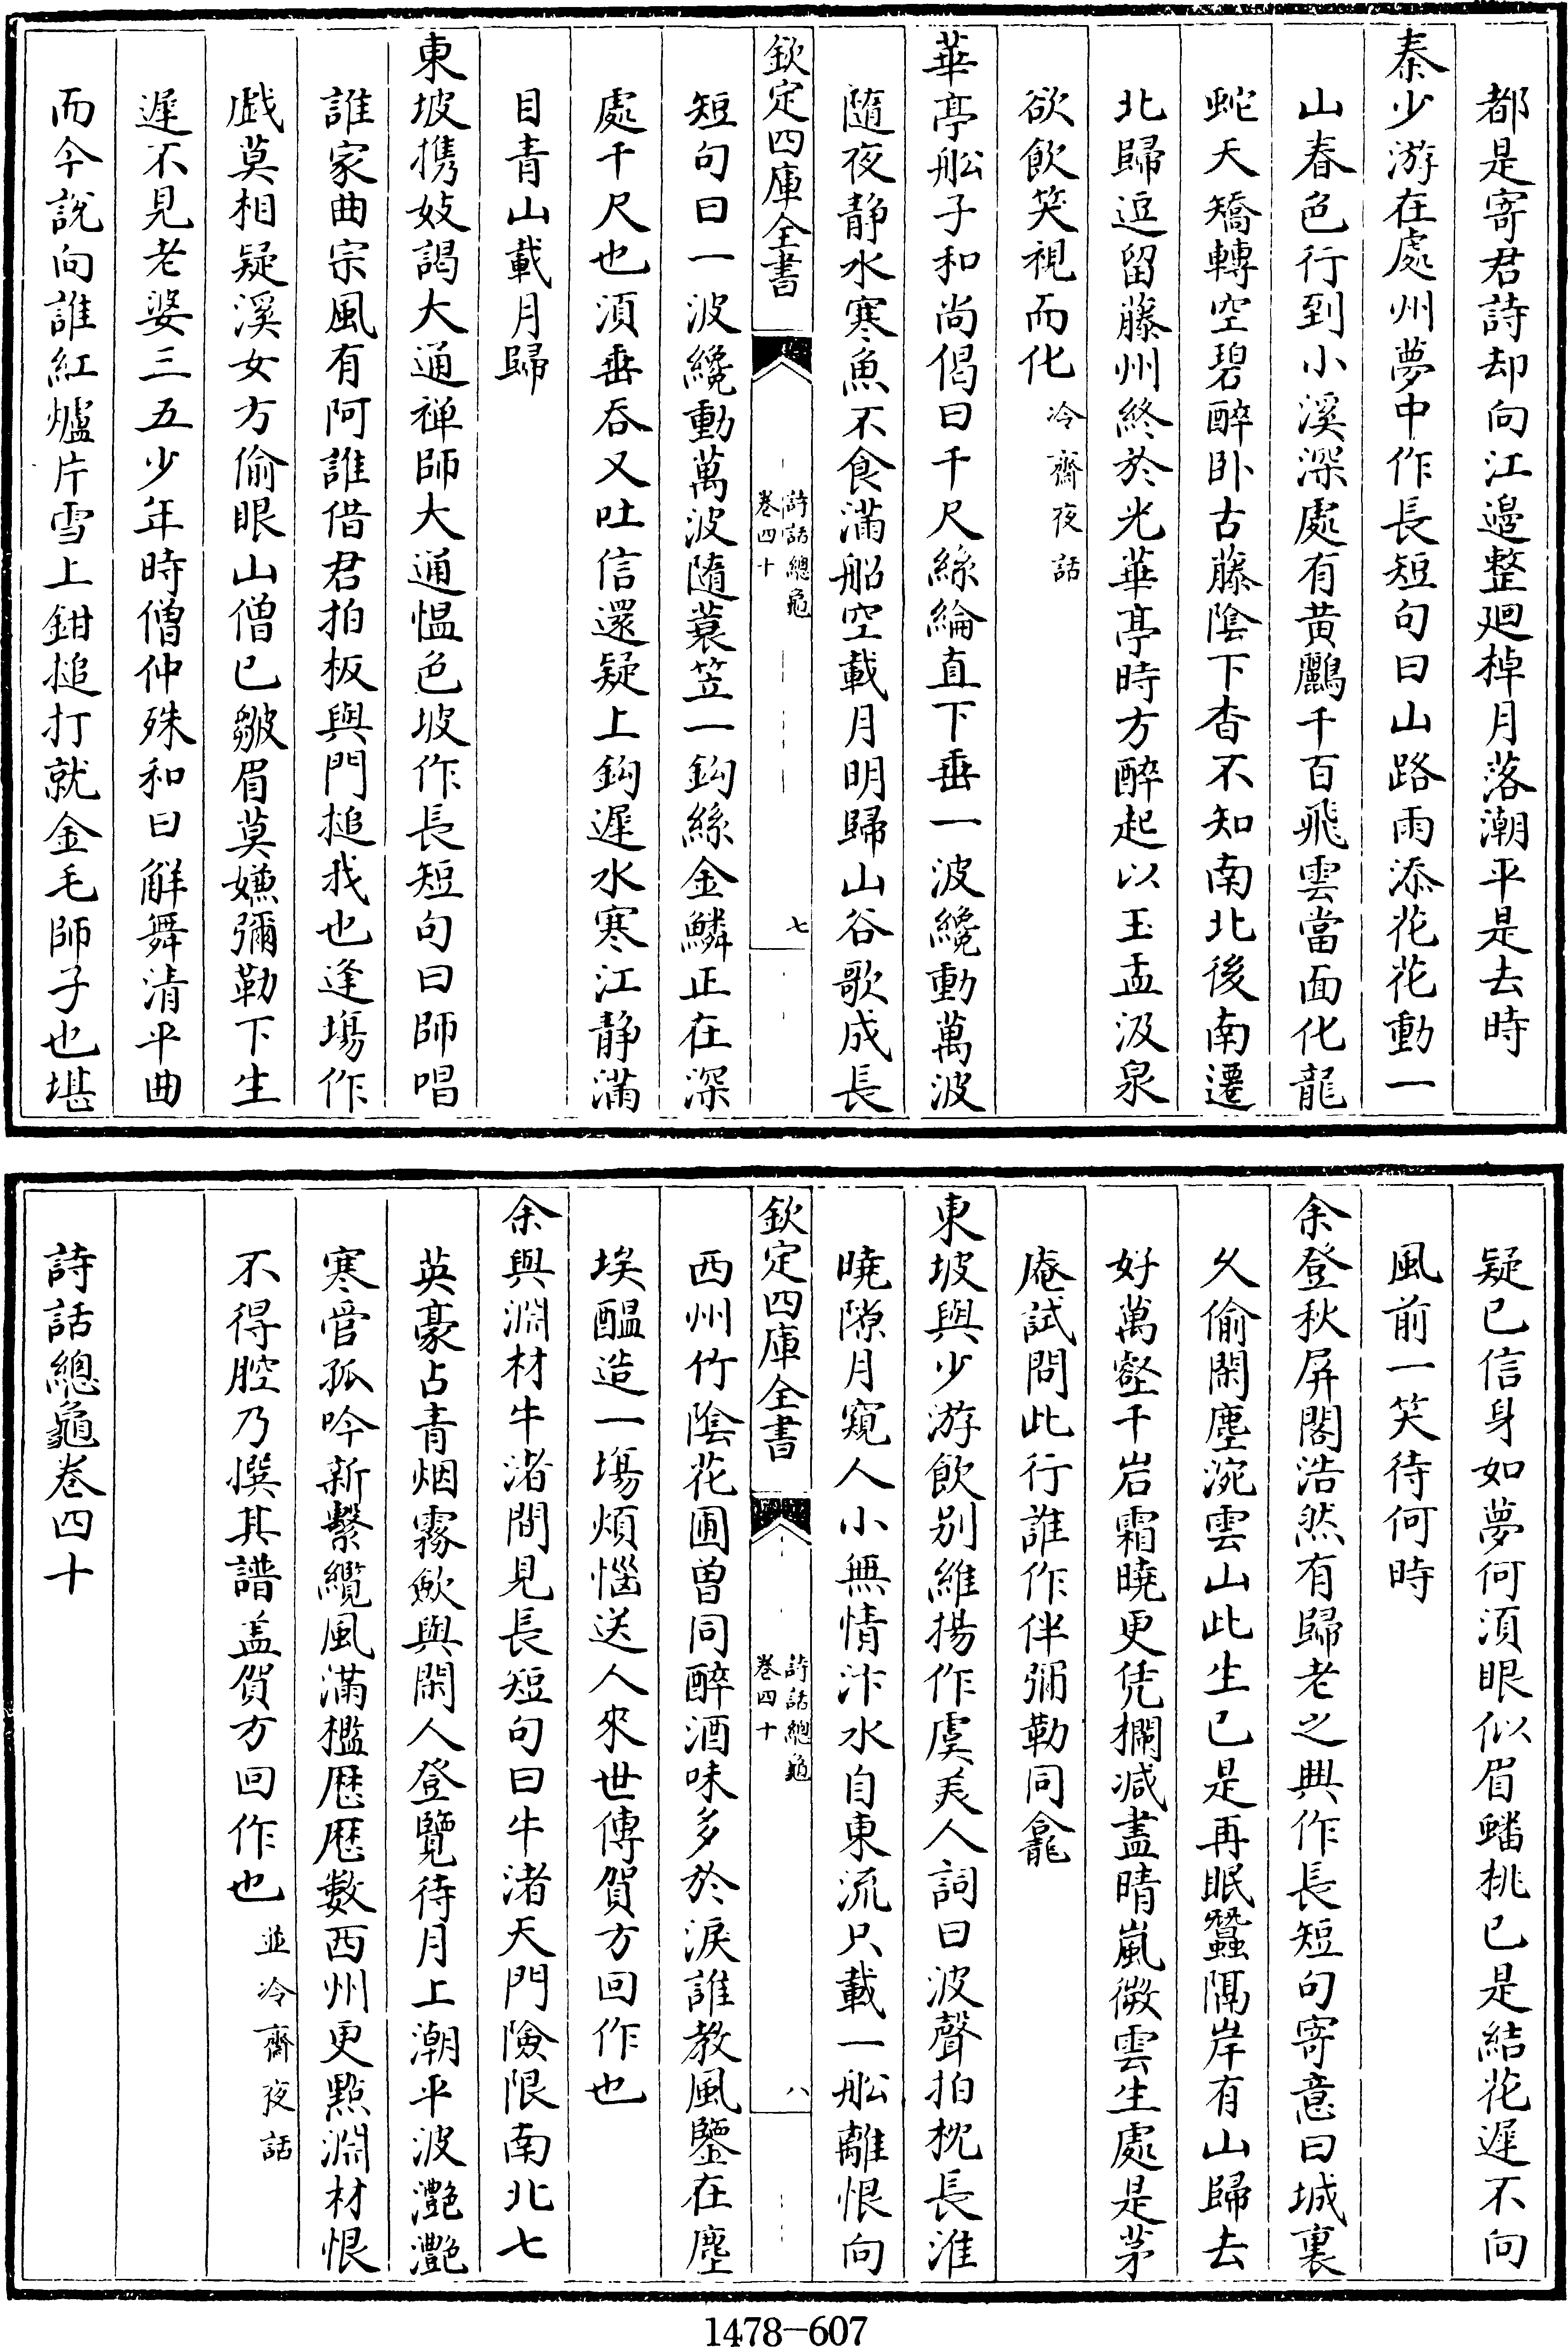 都是寄君詩却向江邉整廻棹月落潮平是去時
秦少游在處州夢中作長短句曰山路雨添花花動一
山春色行到小溪深處有黄鸝千百飛雲當面化龍
蛇天矯轉空碧醉卧古藤陰下杳不知南北後南遷
北歸逗留藤州終於光華亭時方醉起以玉盂汲泉
欲飲笑視而化冷齋夜話
華亭舩子和尚偈曰千尺絲綸直下垂一波纔動萬波
隨夜静水寒魚不食滿船空載月明歸山谷歌成長
欽定四庫全書
詩話總龜
卷四十
七
短句曰一波纔動萬波隨蓑笠一鈎絲金鱗正在深
處千尺也須垂吞又吐信還疑上鈎遲水寒江静滿
目青山載月歸
東坡攜妓謁大通禅師大通愠色坡作長短句曰師唱
誰家曲宗風有阿誰借君拍板與門搥我也逢塲作
戯莫相疑溪女方偷眼山僧已皺眉莫嫌彌勒下生
遲不見老婆三五少年時僧仲殊和曰解舞清平曲
而今說向誰紅爐片雪上鉗搥打就金毛師子也堪
疑已信身如夢何須眼似眉蟠桃已是結花遲不向
風前一笑待何時
余登秋屏閣浩然有歸老之興作長短句寄意曰城裏
久偷閑塵涴雲山此生已是再眠蠶隔岸有山歸去
好萬壑千岩霜曉更凭欄减盡晴嵐微雲生處是茅
庵試問此行誰作伴彌勒同龕
東坡與少游飲别維揚作虞美人詞曰波聲拍枕長淮
曉隙月窺人小無情汴水自東流只載一舩離恨向
欽定四庫全書
詩話總龜
卷四十
八
西州竹陰花圃曾同醉酒味多於淚誰教風鑒在塵
埃醖造一塲煩惱送人來世傳賀方回作也
余與淵材牛渚間見長短句曰牛渚天門險限南北七
英豪占青烟霧歛與閑人登覽待月上潮平波灧灧
寒管孤吟新繫纜風滿檻歴歴數西州更點淵材恨
不得腔乃撰其譜盖賀方回作也並冷齋夜話
詩話總龜卷四十
1478-607